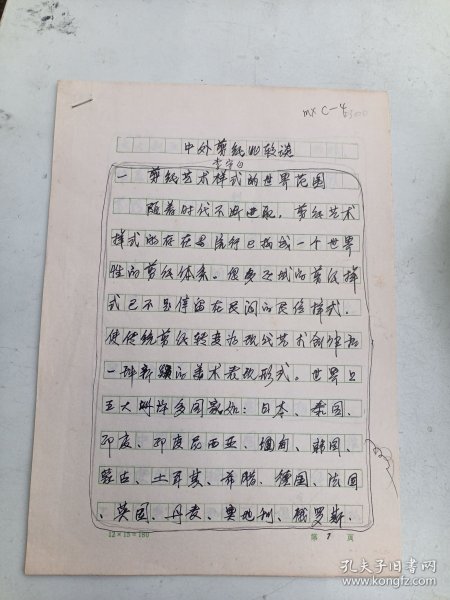 mx C-4
中外剪纸比较谈
李宇白
一 剪纸艺术样式的世界范围
随着时代不断进取,剪纸艺术
样式的存在与流行已构成一个世界
性的剪纸体系。很多区域的剪纸样
式已不是停留在民间的民俗样式,
使传统剪纸转变为现代艺术创作和
一种新颖的美术表现形式。世界上
五大州许多国家如:日本、泰国、
印度、印度尼西亚、缅甸、韩国、
蒙古、土耳其、希腊、德国、法国
、英国、丹麦、奥地利、俄罗斯、
12×15=180
第 1 页
孔夫子旧书网
www.kongfz.com